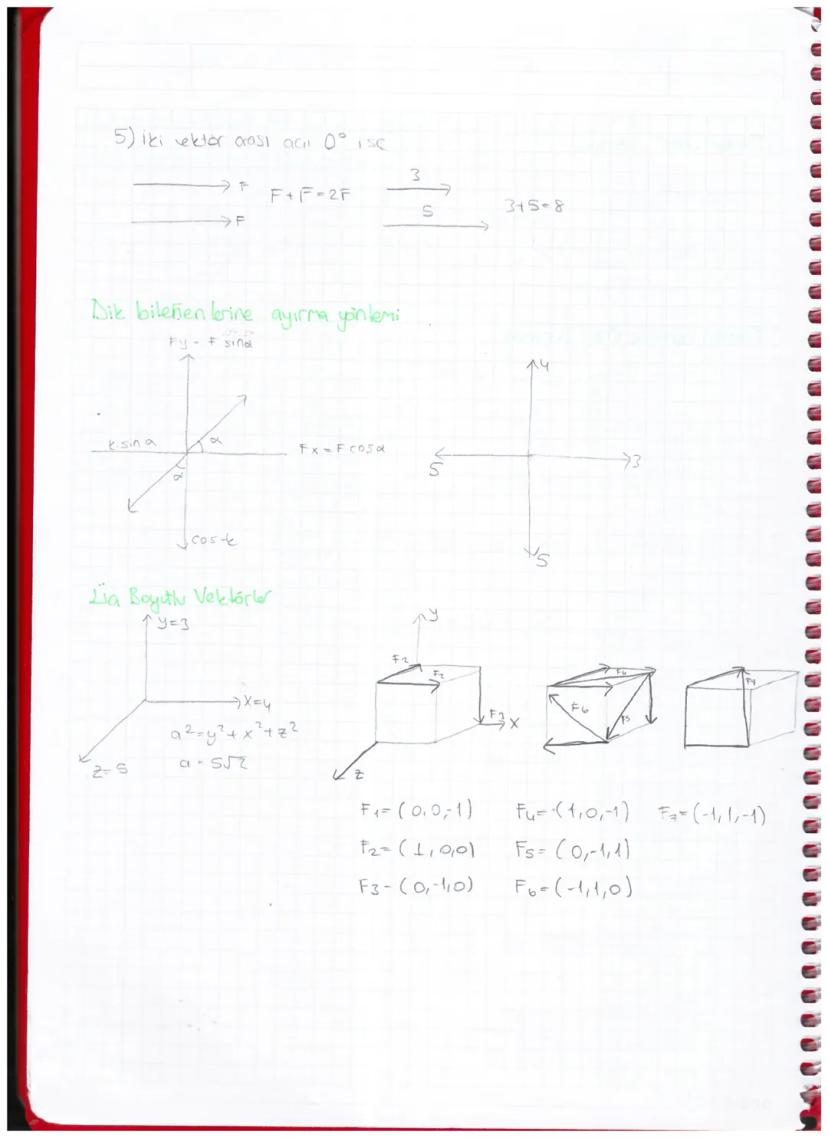 5) iki vektör arası açı 0° ise
F
F
F + F = 2F
3
5
3+5=8
Dik bileşenlerine ayırma yöntemi
Fy - F sinα
α
k.sinα
Fx = F cosα
α
cos-k
4
3
5
5
Boyutlu Vektörler
y=3
x=4
z=5
a²=y²+x²+z²
a = 5√2
y
F2
F3
x
z
F6
F5
F1=(0,0,-1)
F4=-(1,0,-1)
F7=(-1,1,-1)
F2=(1,0,0)
F5=(0,-1,1)
F3-(0,-1,0)
F6=(-1,1,0)